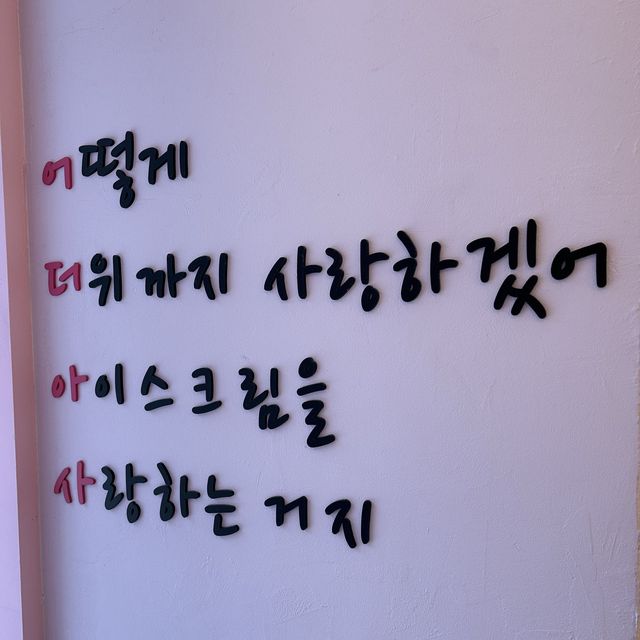 어떻게
더위까지 사랑하겠어
아이스크림을
사랑하는 거지